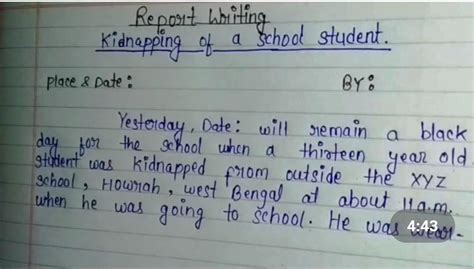 Report Writing
Kidnapping of a school student.
Place & Date :
BY :
Yesterday, Date : will remain a black
day for the school when a thirteen year old
student was kidnapped from outside the XYZ
school, Howrah, west Bengal at about 11 a.m.
when he was going to school. He was wear-
4:43